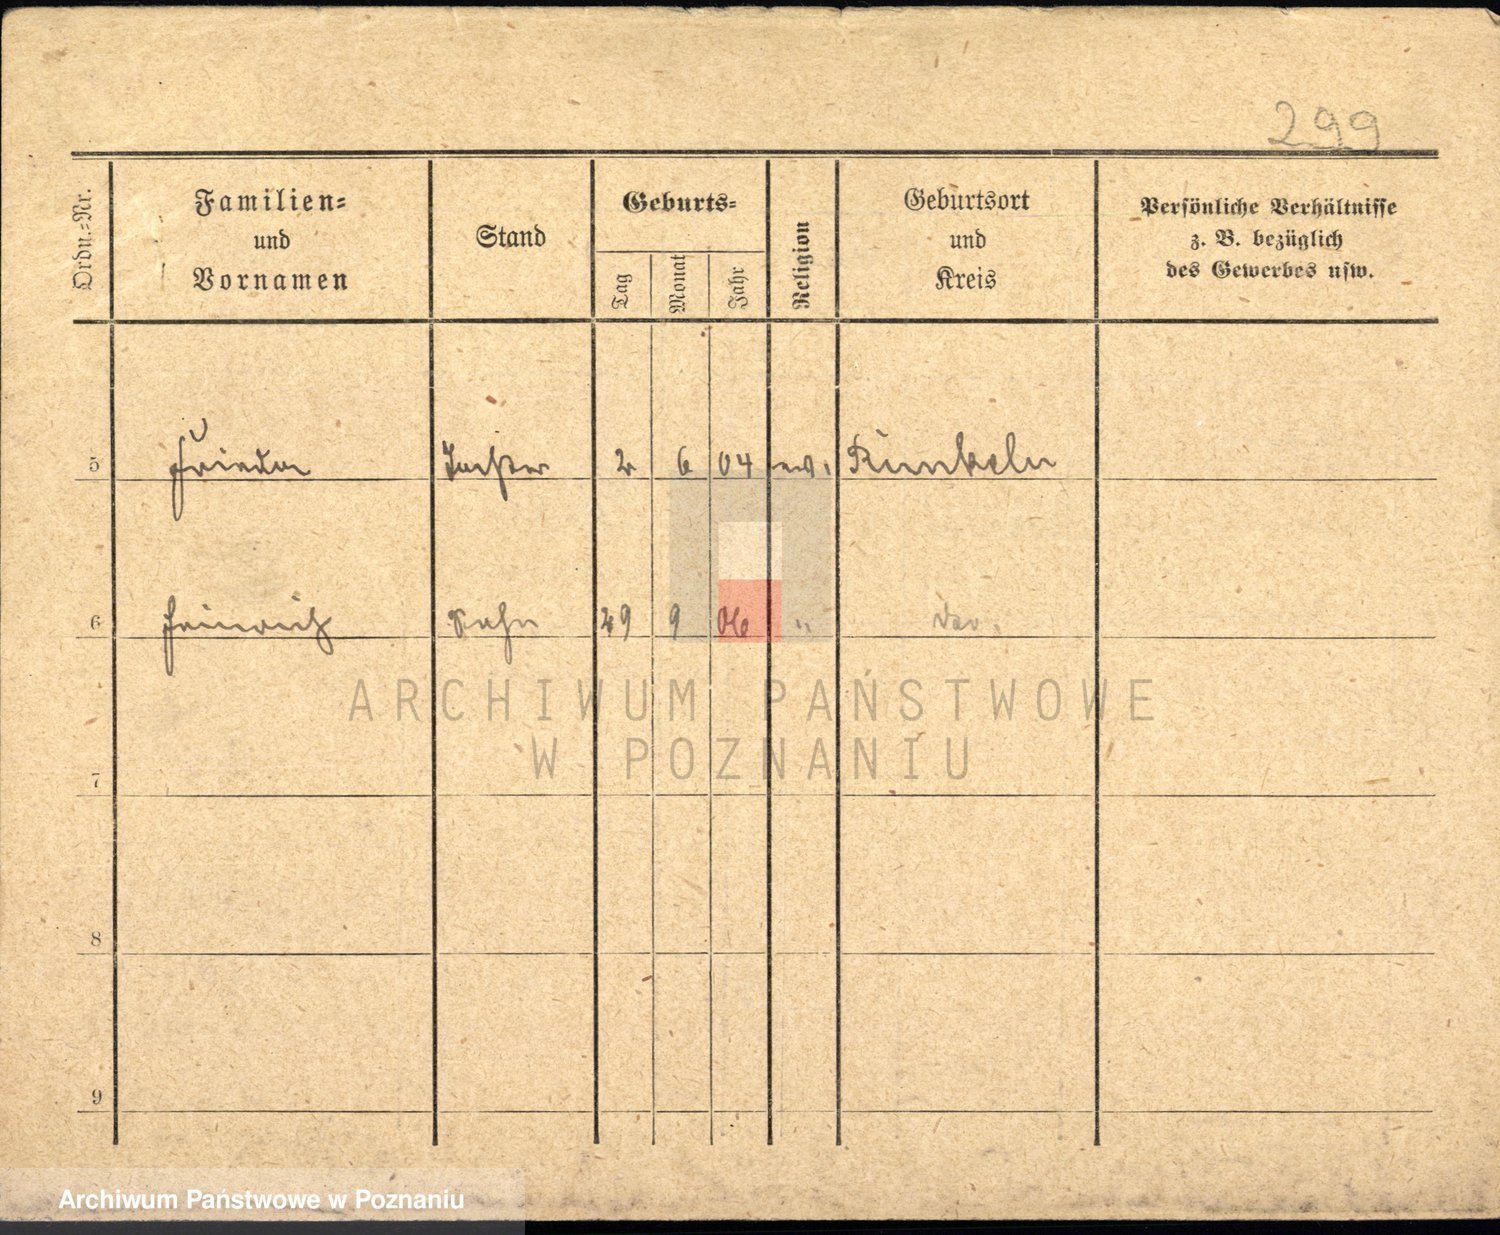 299
Ordn.-Nr.
Familien-
und
Vornamen
Stand
Geburts-
Tag
Monat
Jahr
Religion
Geburtsort
und
Kreis
Persönliche Verhältnisse
z. B. bezüglich
des Gewerbes usw.
5 Frieda Tochter 2 6 04 ev. Kunkeln
6 Heinrich Sohn 29 9 06 " do.
7
8
9
ARCHIWUM PAŃSTWOWE
W POZNANIU
Archiwum Państwowe w Poznaniu